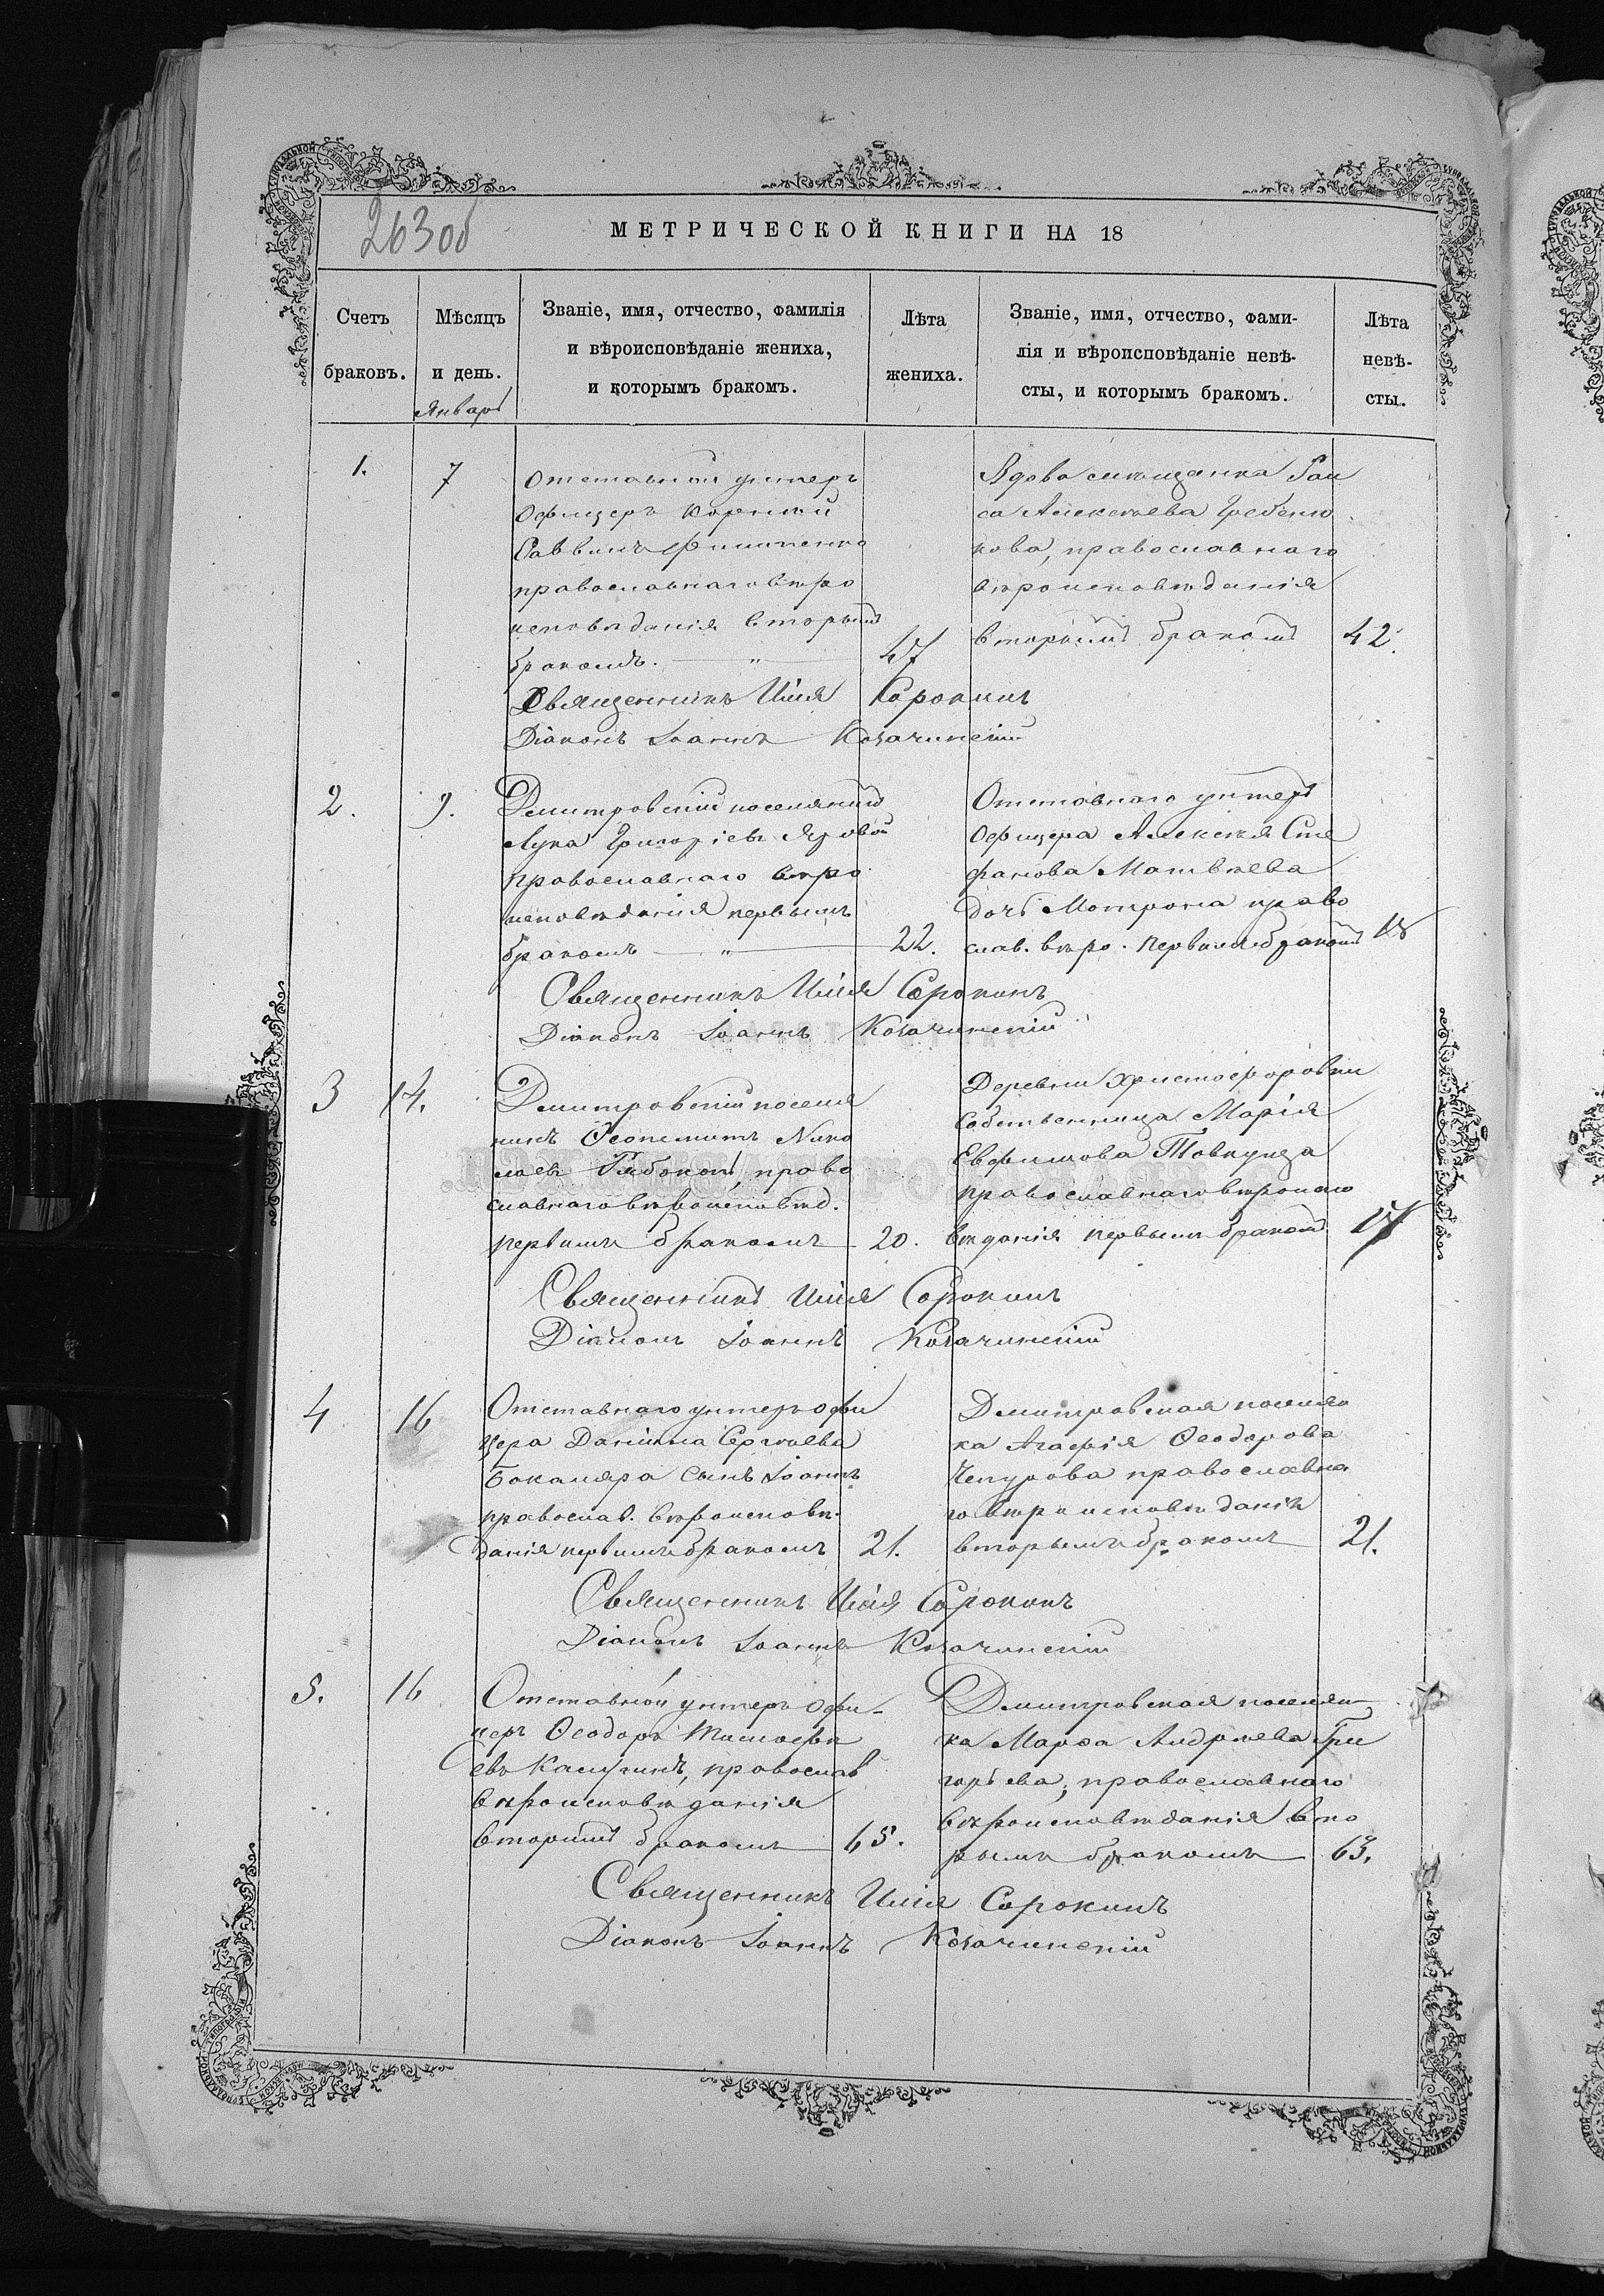 263об
МЕТРИЧЕСКОЙ КНИГИ НА 18
Счетъ браковъ.
Мѣсяцъ и день.
Званіе, имя, отчество, фамилія
и вѣроисповѣданіе жениха,
и которымъ бракомъ.
Лѣта жениха.
Званіе, имя, отчество, фами-
лія и вѣроисповѣданіе невѣ-
сты, и которымъ бракомъ.
Лѣта невѣ-
сты.
Январь
1.
7
Отставной унтеръ
Офицеръ
Саввинъ Филипенко
православнаго вѣро
исповѣданія вторымъ
бракомъ. — " — 47
Вдова солдатка
са Алексѣева
кова, православнаго
вѣроисповѣданія
вторымъ бракомъ 42.
Священникъ Илія Сорокинъ
Діаконъ Іоаннъ Козачинскій
2.
9.
Дмитровскій поселянинъ
Лука Григоріевъ Яровой
православнаго вѣро
исповѣданія первымъ
бракомъ — " — 22.
Отставного унтеръ
Офицера Алексѣя Сте
фанова Матвѣева
дочь Матрона право
слав. вѣро. первымъ бракомъ 18
Священникъ Илія Сорокинъ
Діаконъ Іоаннъ Козачинскій
3
14.
Дмитровскій поселя
нинъ Ѳеопемптъ Нико
лаевъ право
славнаго вѣроисповѣд.
первымъ бракомъ 20.
Деревни Христофоровки
Собственница Марія
Евфимова Товкунда
православнаго вѣроиспо
вѣданія первымъ бракомъ 17
Священникъ Илія Сорокинъ
Діаконъ Іоаннъ Козачинскій
4
16
Отставнаго унтеръ офи
цера Даніила Сергѣева
Бокаляра сынъ Іоаннъ
православ. вѣроисповѣ-
данія первымъ бракомъ 21.
Дмитровская поселян
ка Агафія Ѳеодорова
Чепурова православна
го вѣроисповѣданія
вторымъ бракомъ 21.
Священникъ Илія Сорокинъ
Діаконъ Іоаннъ Козачинскій
5.
16
Отставной унтеръ Офи-
церъ Ѳеодоръ Тимоѳѣ
евъ Калугинъ, православ
вѣроисповѣданія
вторымъ бракомъ 65.
Дмитровская поселян
ка Марѳа Андрѣева Гри
горьева, православнаго
вѣроисповѣданія вто
рымъ бракомъ 63.
Священникъ Илія Сорокинъ
Діаконъ Іоаннъ Козачинскій